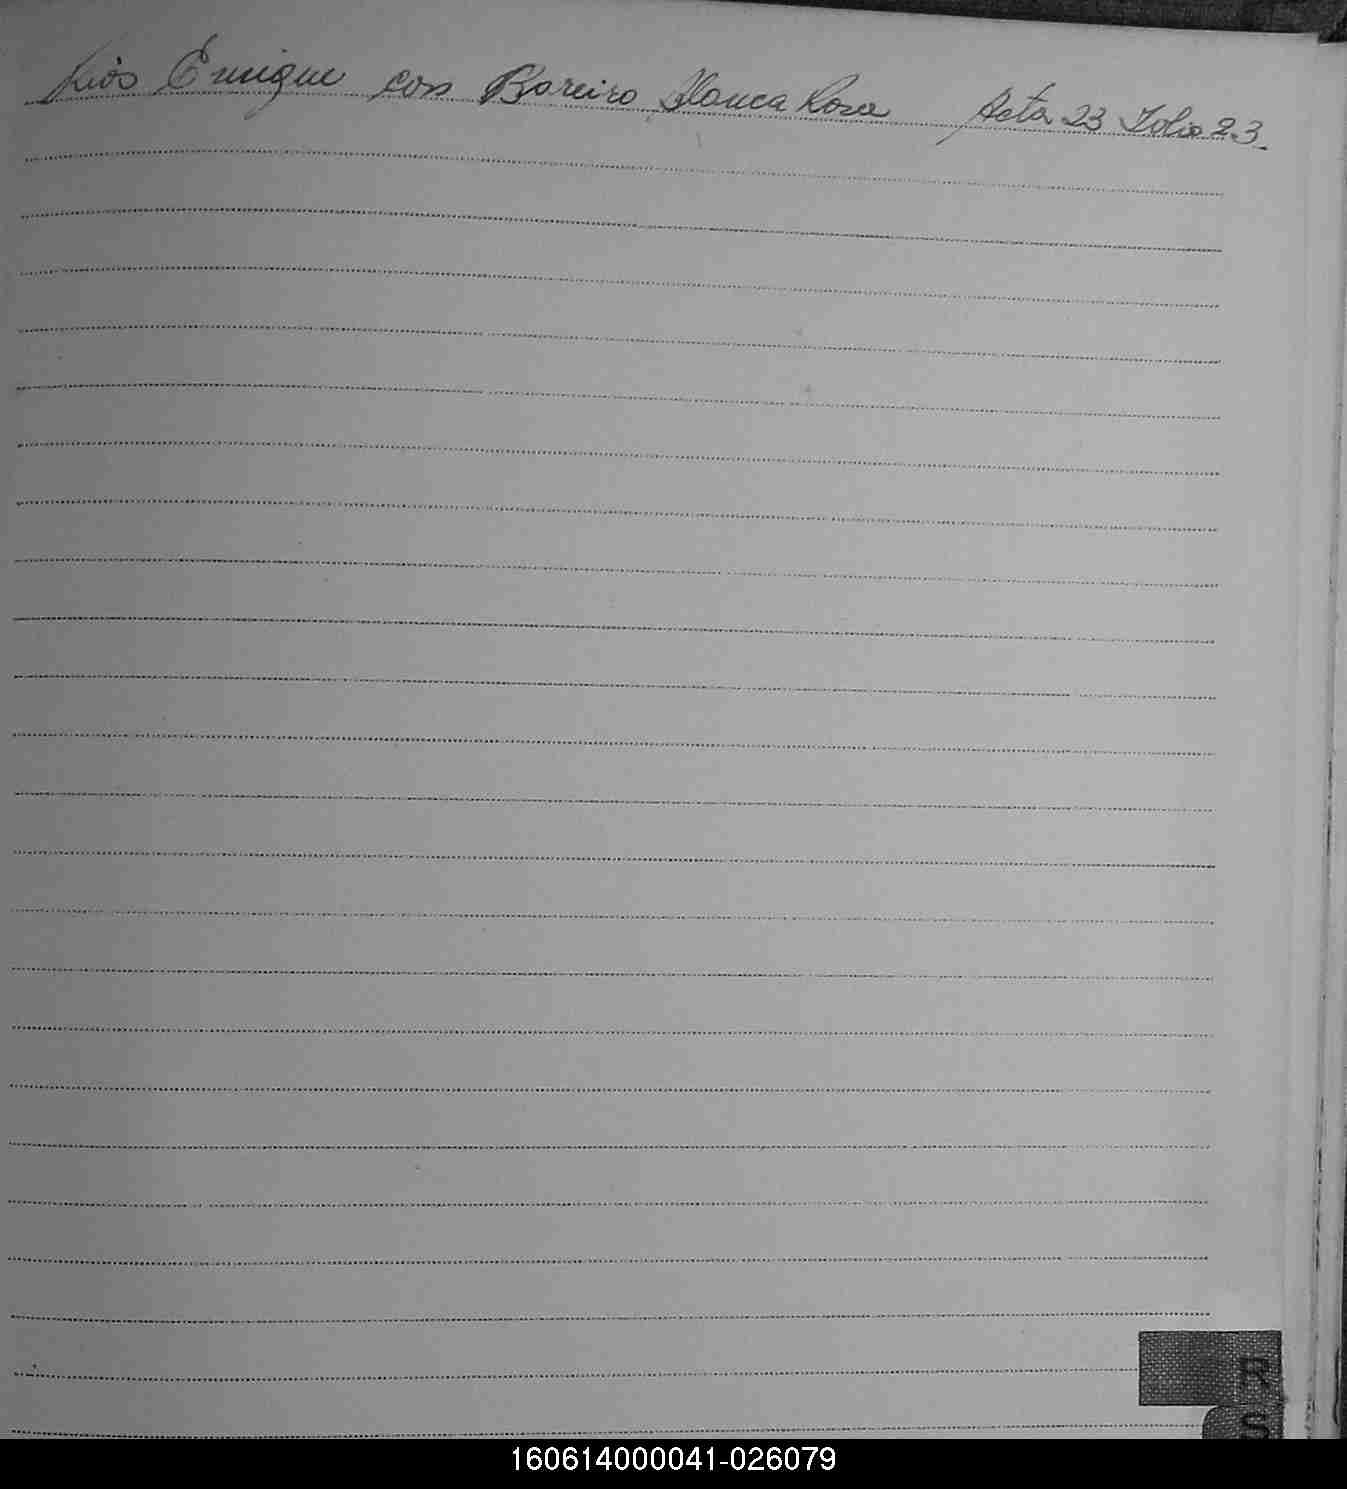 Rios Enrique con Bareiro Blanca Rosa Acta 23 Folio 23.
R
S
160614000041-026079